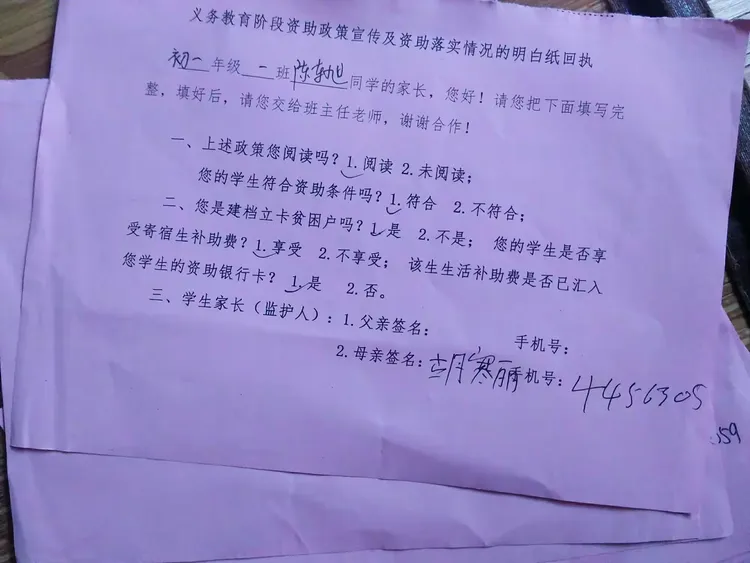 义务教育阶段资助政策宣传及资助落实情况的明白纸回执
初一年级 一 班陈东旭同学的家长，您好！请您把下面填写完
整，填好后，请您交给班主任老师，谢谢合作！
一、上述政策您阅读吗？1.阅读 2.未阅读；
您的学生符合资助条件吗？1.符合 2.不符合；
二、您是建档立卡贫困户吗？1.是 2.不是； 您的学生是否享
受寄宿生补助费？1.享受 2.不享受； 该生生活补助费是否已汇入
您学生的资助银行卡？ 1.是 2.否。
三、学生家长（监护人）：1.父亲签名： 手机号：
2.母亲签名：胡寒丽手机号：4456305
59